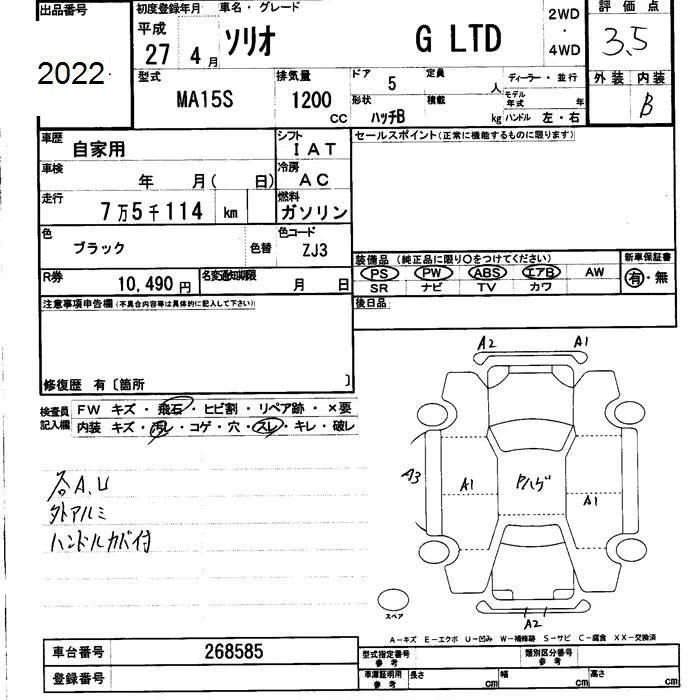 出品番号 初度登録年月 車名・グレード 2WD 評価点
平成 ・
27 4月 ソリオ G LTD 4WD 3.5
2022 型式 排気量 ドア 5 定員 人 ディーラー・並行 外装 内装
MA15S 1200 cc 形状 ハッチB 積載 kg モデル年式 年 B
ハンドル 左・右
車歴 自家用 シフト IAT セールスポイント(正常に機能するものに限ります)
車検 年 月( 日) 冷房 AC
走行 7万5千114 km 燃料 ガソリン
色 ブラック 色替 色コード ZJ3
装備品 (純正品に限り○をつけてください) 新車保証書
R券 10,490円 名変通知期限 月 日 PS PW ABS エアB AW 有・無
SR ナビ TV カワ
注意事項申告欄(不具合内容等は具体的に記入して下さい) 後日品
修復歴 有〔箇所 〕
検査員記入欄 FW キズ・飛石・ヒビ割・リペア跡・×要
内装 キズ・汚レ・コゲ・穴・スレ・キレ・破レ
A2 A1
A3 A1 A1
各A.U
外アルミ
ハンドルカバ付
スペア A2
A-キズ E-エクボ U-凹み W-補修跡 S-サビ C-腐食 XX-交換済
車台番号 268585 型式指定番号 参考 類別区分番号 参考
登録番号 車庫証明用 参考 長さ cm 幅 cm 高さ cm